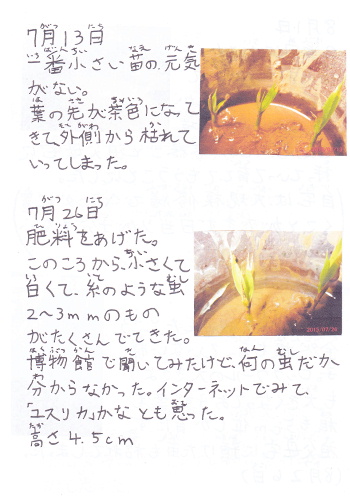 7月13日
一番小さい苗の元気
がない。
葉の先が茶色になって
きて、外側から枯れて
いってしまった。
7月26日
肥料をあげた。
このころから、小さくて
白くて、糸のような虫
2～3mmのもの
がたくさんでてきた。
博物館で聞いてみたけど、何の虫だか
分からなかった。インターネットでみて、
「ユスリカ」かな とも思った。
高さ4.5cm
2012/07/26